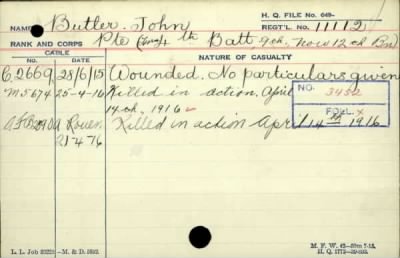 NAME Butler. John H. Q. FILE No. 649-
REGT'L. No. 11112
RANK AND CORPS Pte 4 th Batt now 12th Bn
CABLE NATURE OF CASUALTY
C.2669 25/6/15 Wounded. No particulars given
M5674 25-4-16 Killed in action, April
14th, 1916
NO. 3452
FOLL. X
Rouen Killed in action April 14th 1916
21-4-16
L. L. Job 22325-M. & D. 5932. M. F. W. 42-50m-7-15.
H. Q. 1772-39-893.